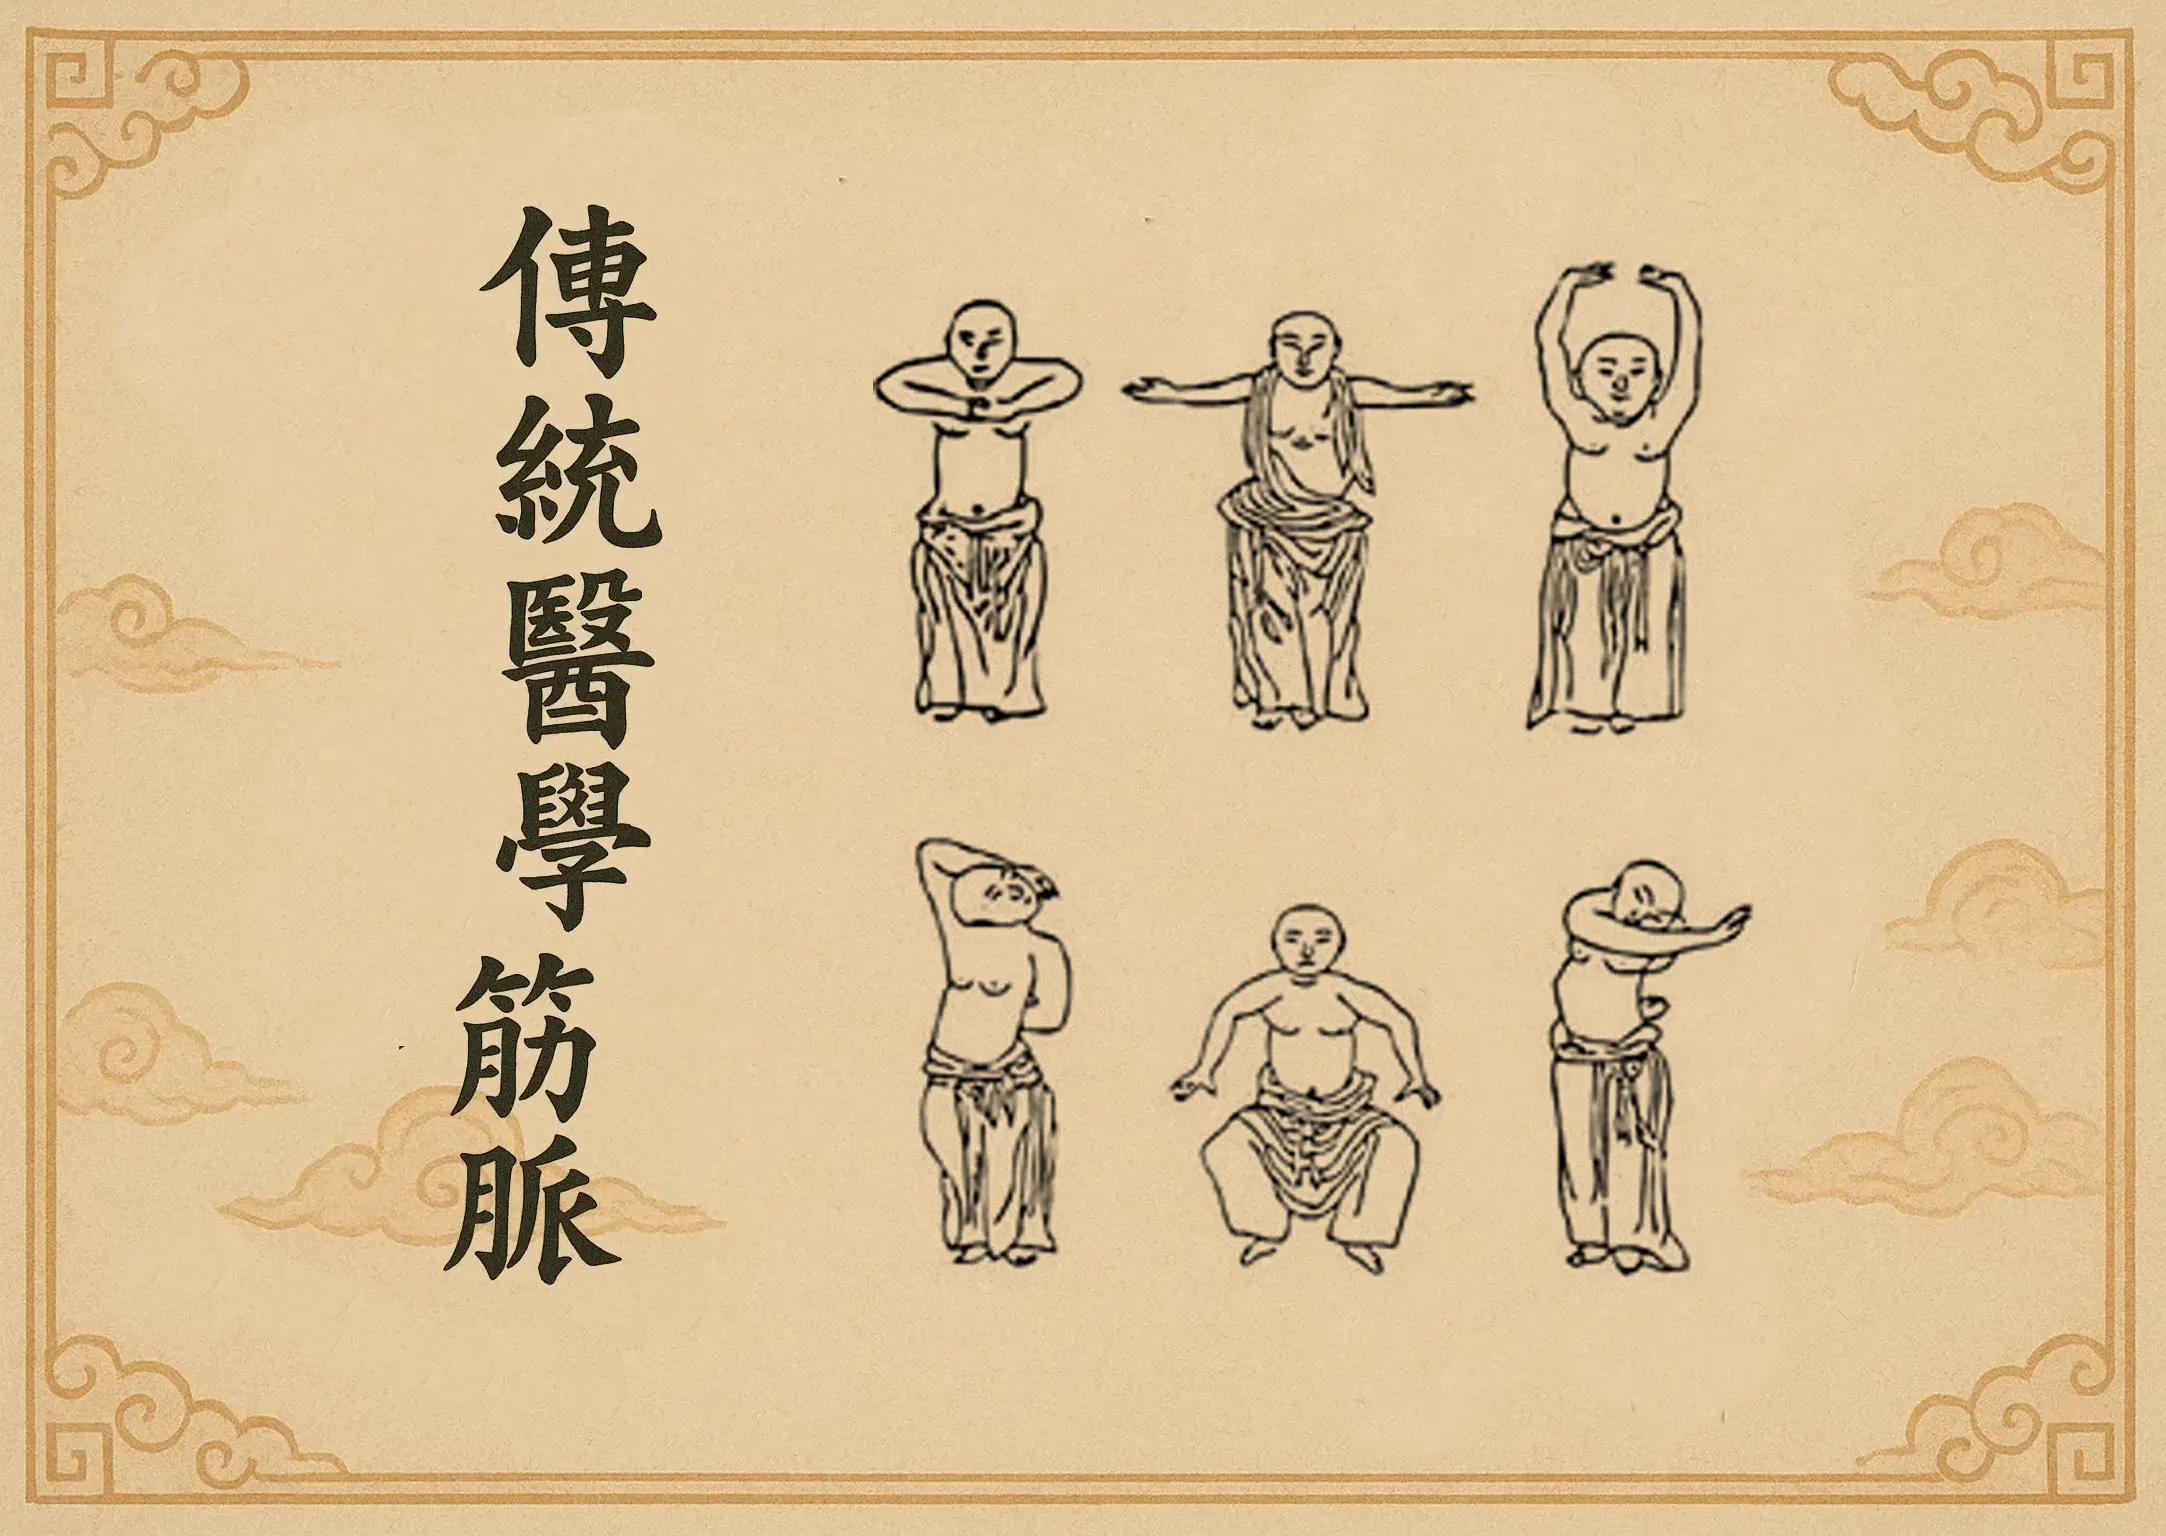 傳統醫學筋脈